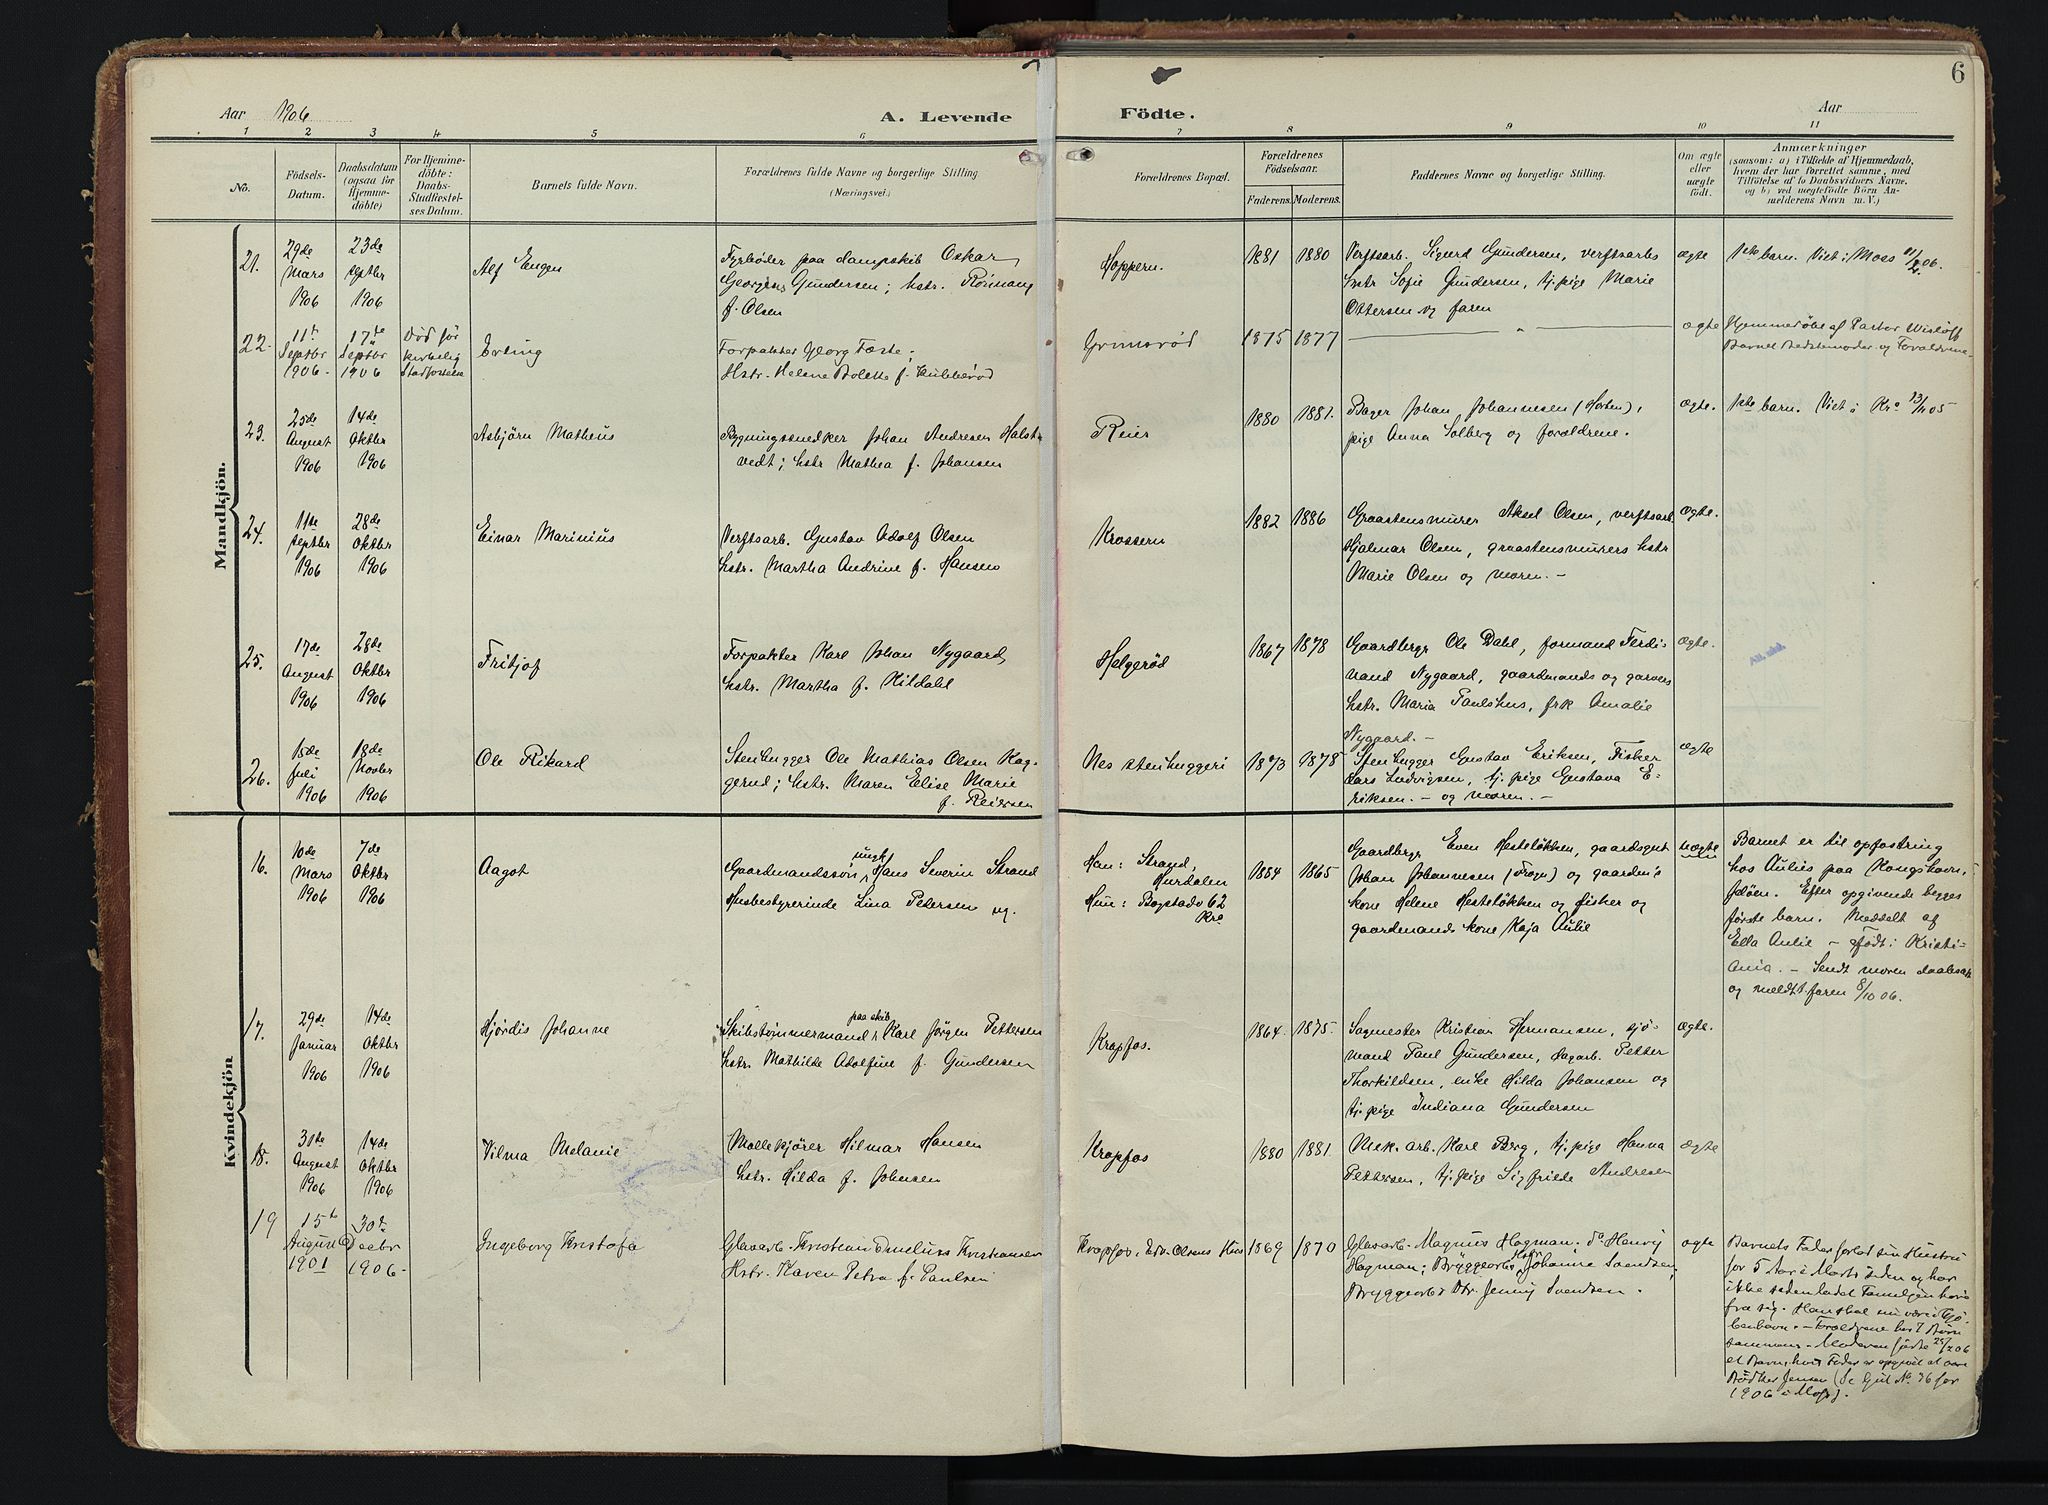 6
Aar 1906
A. Levende
Födte.
Aar
1 2 3 4 5 6 7 8 9 10 11
No.
Födsels-
Datum.
Daabsdatum
(ogsaa for
Hjemme-
döbte)
For Hjemme-
döbte:
Daabs-
Stadfæstel-
ses Datum.
Barnets fulde Navn.
Forældrenes fulde Navne og borgerlige Stilling
(Næringsvei.)
Forældrenes Bopæl.
Forældrenes
Födselsaar.
Faderens. Moderens.
Faddernes Navne og borgerlige Stilling.
Om ægte
eller
uægte
födt.
Anmærkninger
(saasom: a) i Tilfælde af Hjemmedaab,
hvem der har forrettet samme, med
Tilföielse af to Daabsvidners Navne.
og b) ved uegtefödte Börn An-
melderens Navn m. V.)
Mandkjön.
21.
29de
Mars
1906
23de
septbr
1906
Alf Eugen
Fyrböder paa dampskib Oskar
Georgius Gundersen; hstr.
f. Olsen
Hoppern.
1881 1880
Verftsarb. Sigurd Gundersen, verftsarbs
hstr Sofie Gundersen, tj. pige Marie
Ottersen og faren
ægte
1ste barn. Viet i Moss 11/2 06.
22.
11te
Septbr
1906
17de
Septbr
1906
Död för
kirkelig
Stadfæstelse
Erling
Forpakter Georg Fæste;
Hstr. Helene Bolette f. Kubberöd
Grimsröd
1875 1877
— " —
ægte
Hjemmedöbt af Pastor Wislöff
Barnets Bedstemoder og Forældrene
23.
25de
August
1906
14de
Oktbr
1906
Asbjörn Matheus
Bygningssnedker Johan Andresen Halst-
vedt; hstr Mathea f. Johansen
Reier
1880 1881.
Bager Johan Johannesen (Horten),
pige Anna Solberg og forældrene.
ægte.
1ste barn. Viet i Kra 13/1 05
24.
11te
septbr
1906
28de
Oktbr
1906
Einar Marinius
Verftsarb. Gustav Adolf Olsen
hstr. Martha Andrine f. Hansen
Krossern
1882 1886
Graastensmurer Aksel Olsen, verftsarb.
Hjalmar Olsen, graastensmurers hstr
Marie Olsen og moren. –
ægte.
25.
17de
August
1906
28de
Oktbr
1906
Fritjof
Forpakter Karl Johan Nygaard,
hstr. Martha f. Kildahl
Helgeröd
1867 1878
Gaardbrgr Ole Dahl, formand Ferdi-
nand Nygaard, gaardmands og garvers
hstr. Maria Paulshus, frk Amalie
Nygaard. –
ægte.
26.
15de
Juli
1906
18de
Novbr
1906
Ole Rikard
Stenhugger Ole Mathias Olsen Hag-
gerud; hstr. Maren Elise Marie
f. Reiersen
Nes stenhuggeri
1873 1878
Stenhugger Gustav Eriksen, Fisker
Lars Ludvigsen, tj. pige Gustava E-
riksen. – og moren. –
ægte
Kvindekjön
16.
10de
Mars
1906
7de
Oktbr
1906
Aagot
ungk
Gaardmandssön Hans Severin Strand
Husbestyrerinde Lina Petersen ug.
Han: Strand,
Hurdalen
Hun: Bogstadv 62
Kra
1884 1865
Gaardbrgr Even Hestelökken, gaardsgut
Johan Johannesen (Frogn) og gaardm's
kone Helene Hestelökken og fisker og
gaardmands kone Kaja Aulie
uægte
Barnet er til opfostring
hos Aulies paa Kongshavn,
Jelöen. Efter opgivende begges
förste barn. Meddelt af
Ella Aulie – Födt i Kristi-
ania. – Sendt moren daabsatt
og meldt faren 8/10 06.
17.
29de
Januar
1906
14de
Oktbr
1906
Hjördis Johanne
paa skib
Skibstömmermand Karl Jörgen Pettersen
hstr. Mathilde Adolfine f. Gundersen
Krapfos.
1864. 1875.
Sagmester Kristian Hermansen, sjö-
mand Paul Gundersen, sagarb. Petter
Thorkildsen, enke Hilda Johansen og
tj. pige Indiana Gundersen
ægte.
18.
30te
August
1906
14de
Oktbr
1906
Vilma Melanie
Mollekjörer Hilmar Hansen
hstr. Hilda f. Johnsen
Krapfos
1880 1881.
Mek. arb. Karl Berg, tj. pige Hanna
Pettersen, tj. pige Sigfride Andresen
ægte
19
15de
August
1901
30te
Decbr
1906
Ingeborg Kristofa
Glasarb. Kristian Emelius Kristiansen
Hstr. Karen Petra f. Paulsen
Krapfos. Edv. Olsens Hus
1869 1870
Glasarb. Magnus Hagman; do Henrij
Hstr
Hagman; Bryggearbs Johanne Svendsen;
Bryggearbs Dtr. Jenny Svendsen.
ægte
Barnets Fader forlod sin Hustru
for 5 Aar i Marts siden og har
ikke siden ladet Familjen höre
fra sig. Han skal nu være i Kjö-
benhavn. – Forældrene har 7 Börn
sammen. Moderen födte 25/2 06
et Barn, hvis Fader er opgivet at være
Bödker Jensen (Se Gjul No. 76 for
1906 i Moss).